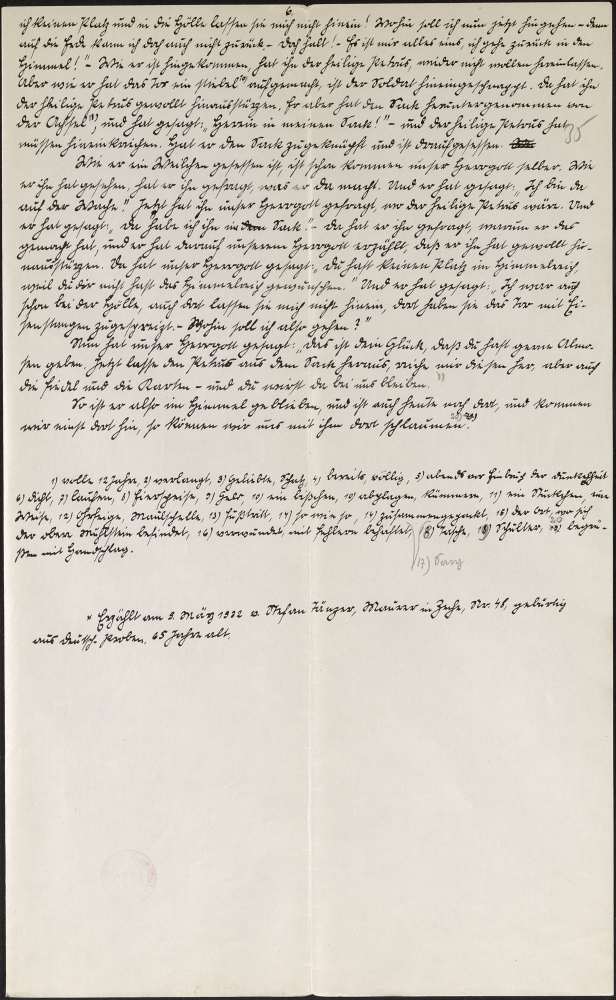 6.
ich keinen Platz und in die Hölle lassen sie mich nicht hinein! Wohin soll ich nun jetzt hingehen – denn
auf die Erde kann ich doch auch nicht zurück. – Doch halt! – Es ist mir alles eins, ich gehe zurück in den
Himmel!" – Wie er ist hingekommen, hat ihn der heilige Petrus, wieder nicht wollen hereinlassen.
Aber wie er hat das Tor ein aufgemacht, ist der Soldat hineingeschnappt. Da hat ihn
der heilige Petrus gewollt hinausstürzen. Er aber hat den Sack heruntergenommen von
der Achsel, und hat gesagt: „Herein in meinen Sack!" – und der heilige Petrus hat
müssen hineinkriechen. Hat er den Sack zugeknüpft und ist draufgesessen.
35
Wie er ein Weilchen gesessen ist, ist schon kommen unser Herrgott selber. Wie
er ihn hat gesehen, hat er ihn gefragt, was er da macht. Und er hat gesagt: „Ich bin da
auf der Wache." Jetzt hat ihn unser Herrgott gefragt, wo der heilige Petrus wäre. Und
er hat gesagt: „Da habe ich ihn im Sack." – Da hat er ihn gefragt, warum er das
gemacht hat, und er hat darauf unserem Herrgott erzählt, daß er ihn hat gewollt hin-
ausstürzen. Da hat unser Herrgott gesagt: „Du hast keinen Platz im Himmelreich,
weil du dir nicht hast das Himmelreich gewunschen." Und er hat gesagt: „Ich war auch
schon bei der Hölle, auch dort lassen sie mich nicht hinein, dort haben sie das Tor mit Ei-
senstangen zugespreizt. – Wohin soll ich also gehen?"
Nun hat unser Herrgott gesagt: „Das ist dein Glück, daß du hast gerne Almo-
sen geben. Jetzt lasse den Petrus aus dem Sack heraus, reiche mir diesen her, aber auch
die Fiedel und die Karten – und du wirst da bei uns bleiben."
So ist er also im Himmel geblieben, und ist auch heute noch dort, und kommen
wir einst dort hin, so können wir uns mit ihm dort schlaumen.
1) volle 12 Jahre, 2) verlangt, 3) Geliebte, Schatz, 4) bereits, völlig, 5) abends vor Einbruch der Dunkelheit
6) dicht, 7) laufen, 8) Eierspeise, 9) Geld, 10) ein bißchen, 10) abplagen, kümmern, 11) ein Stückchen, eine
Weise, 12) Ohrfeige, Maulschelle, 13) Fußtritt, 14) so wie so, 14) zusammengepackt, 15) der Ort, wo sich
der obere Mühlstein befindet, 16) verwundet, mit Fehlern behaftet, 18) Tasche, 19) Schulter, 20) begrü-
ßen mit Handschlag.
17) Sarg
* Erzählt am 9. März 1932 v. Stefan Tänzer, Maurer in Zeche, Nr. 48, gebürtig
aus Deutsch-Proben. 65 Jahre alt.